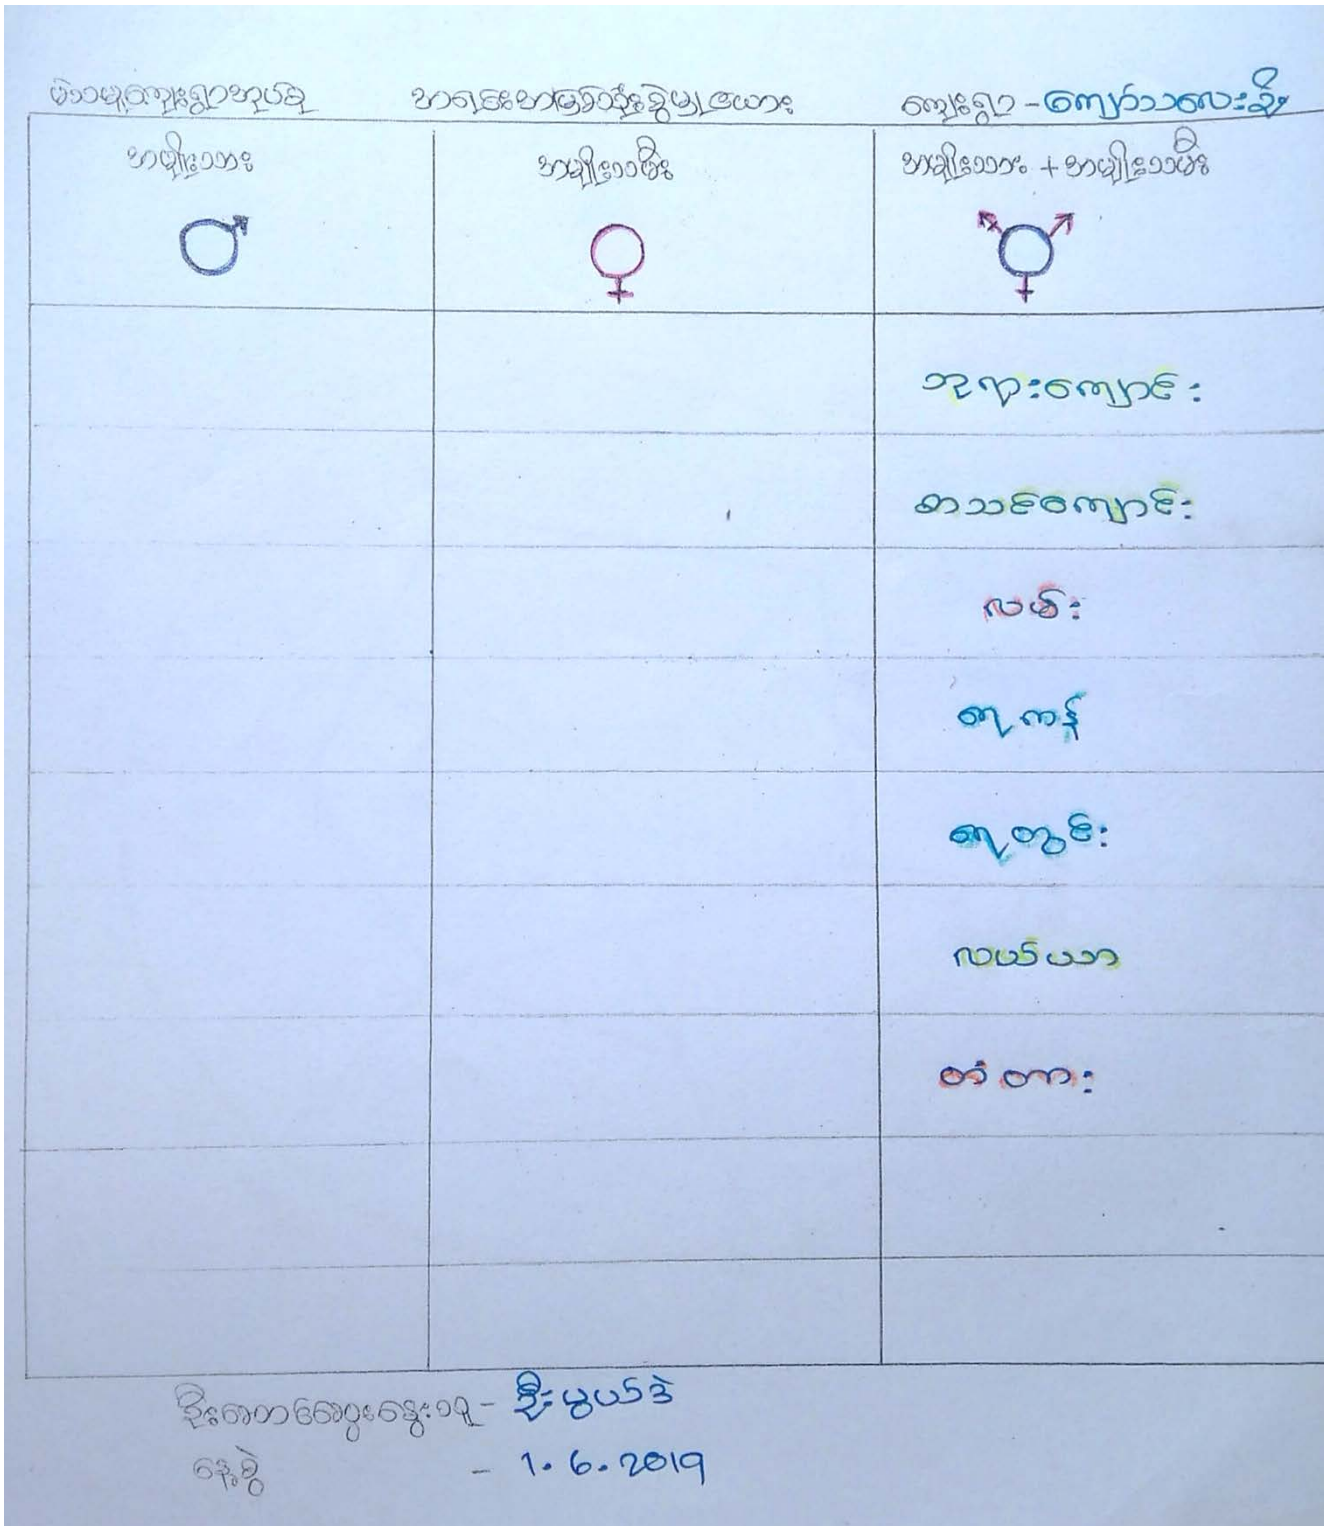 မဲသမူကျေးရွာအုပ်စု အရင်းအမြစ်သုံးစွဲမှုဇယား ကျေးရွာ - ကျော်သလေးခိုး
အမျိုးသား အမျိုးသမီး အမျိုးသား + အမျိုးသမီး
ဘုရားကျောင်း
စာသင်ကျောင်း
လမ်း
ရေကန်
ရေတွင်း
လယ်ယာ
တံတား
ဦးဆောင်ဆွေးနွေးသူ - ဦးမွယ်ဒဲ
နေ့စွဲ - 1.6.2019